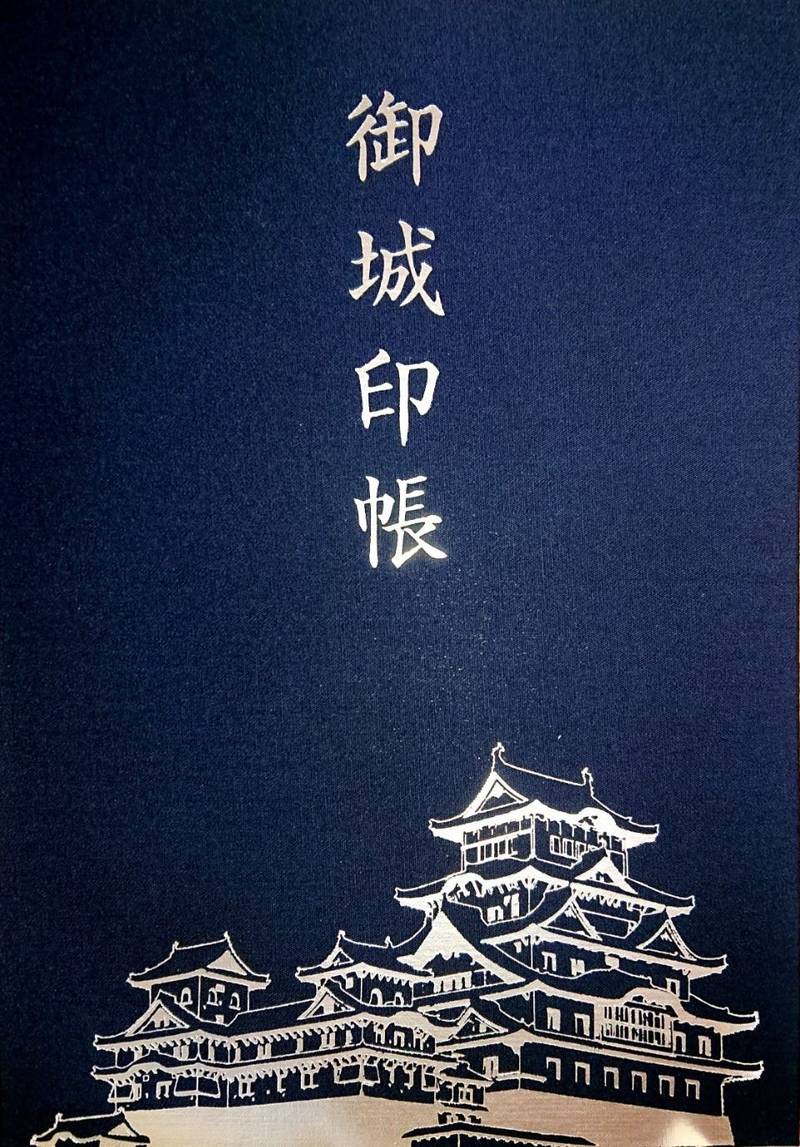 御城印帳